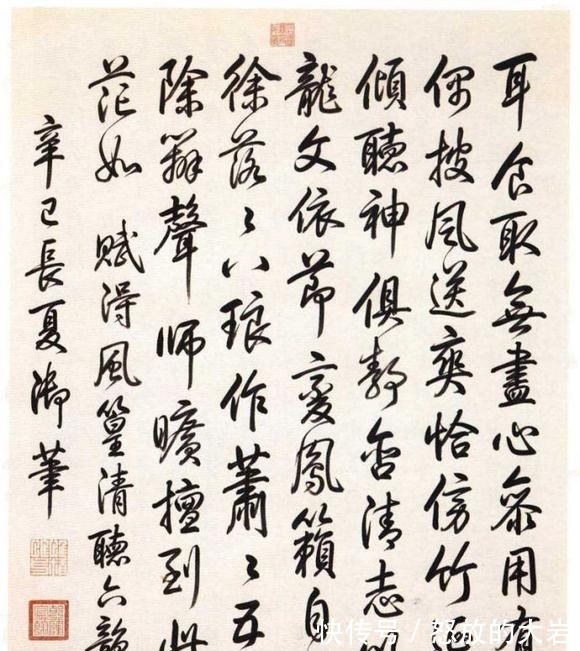 耳食取無盡心齋用有
偶披風送爽恰傍竹
傾聽神俱靜含清志
龍文依節變鳳籟自
徐落々八琅作蕭々五
除箖聲師曠擅到此
茫如 賦得風篁清聽六韻
辛巳長夏御筆
快传号/怒放的大岩